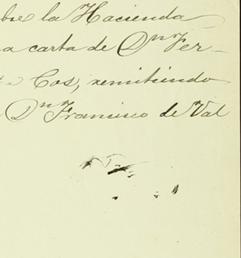 bre la Hacienda
a carta de Dn Fer-
Cos, remitiendo
Dn Francisco de Val